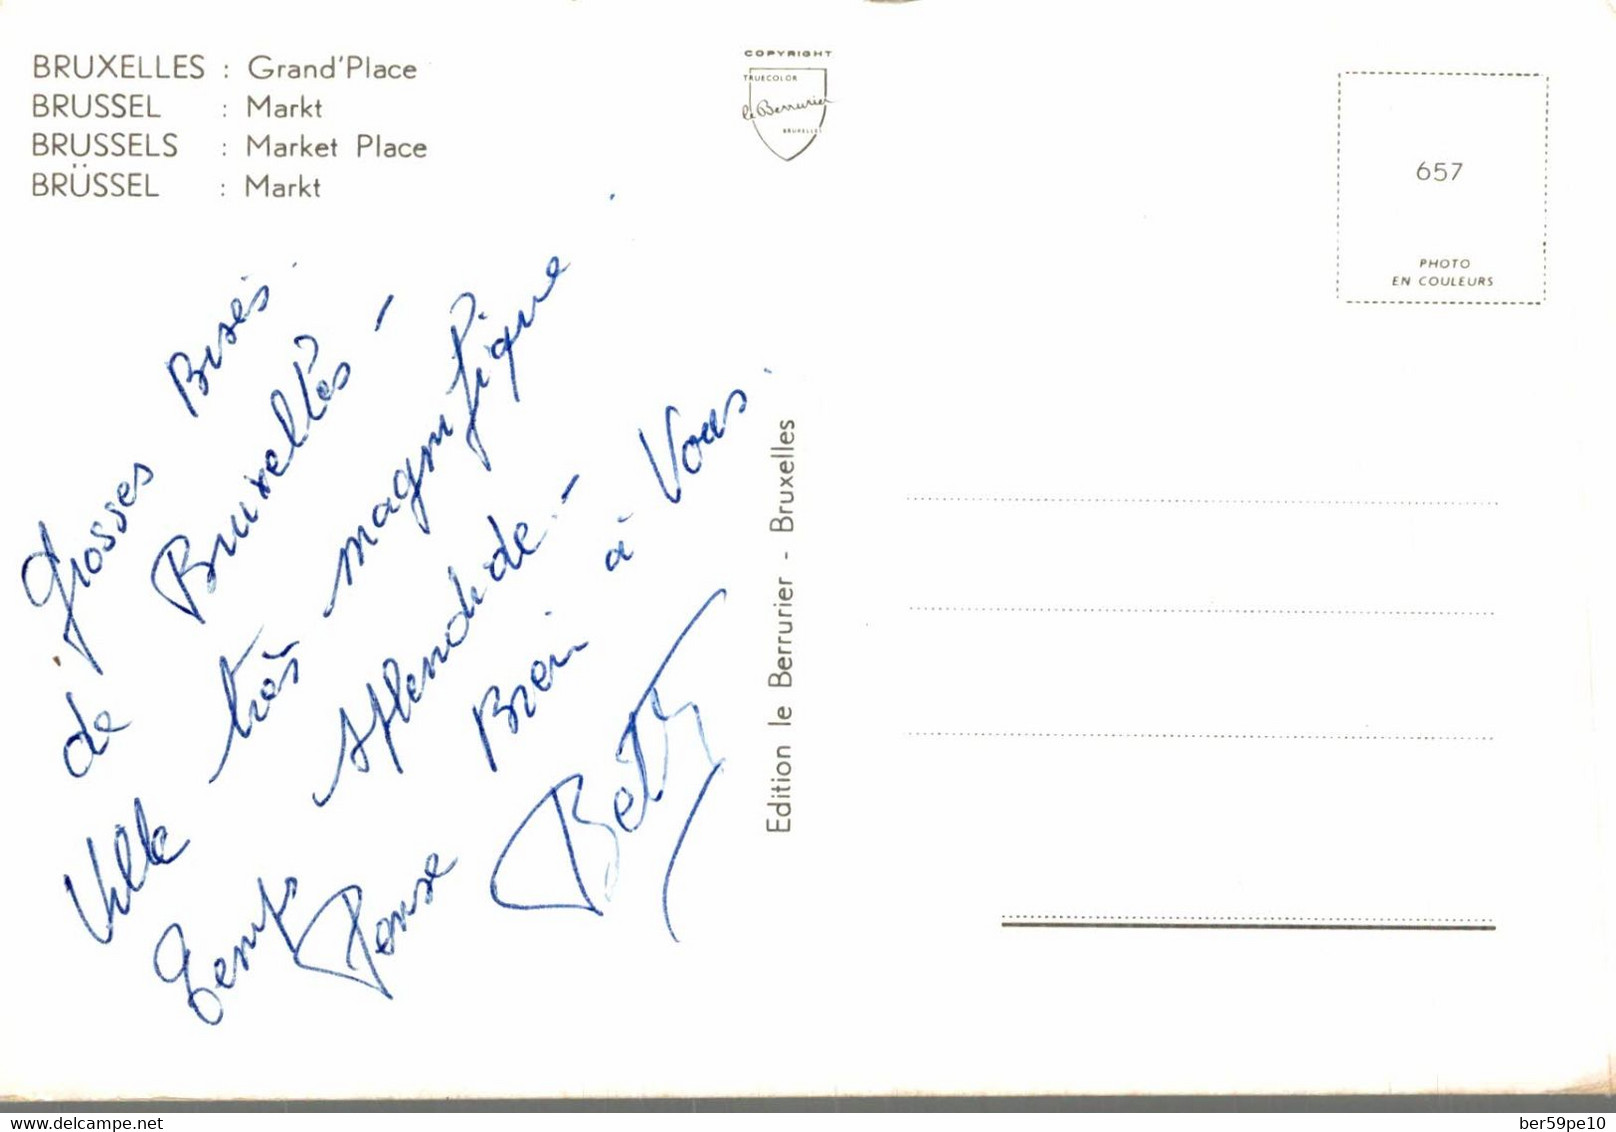 BRUXELLES : Grand'Place
BRUSSEL : Markt
BRUSSELS : Market Place
BRÜSSEL : Markt
COPYRIGHT
TRUECOLOR
le Berrurier
BRUXELLES
657
PHOTO
EN COULEURS
Grosses Bises.
de Bruxelles -
Ville très magnifique.
Temps splendide. -
Pense Bien à Vous.
Betty
Edition le Berrurier - Bruxelles
delcampe.net
ber59pe10